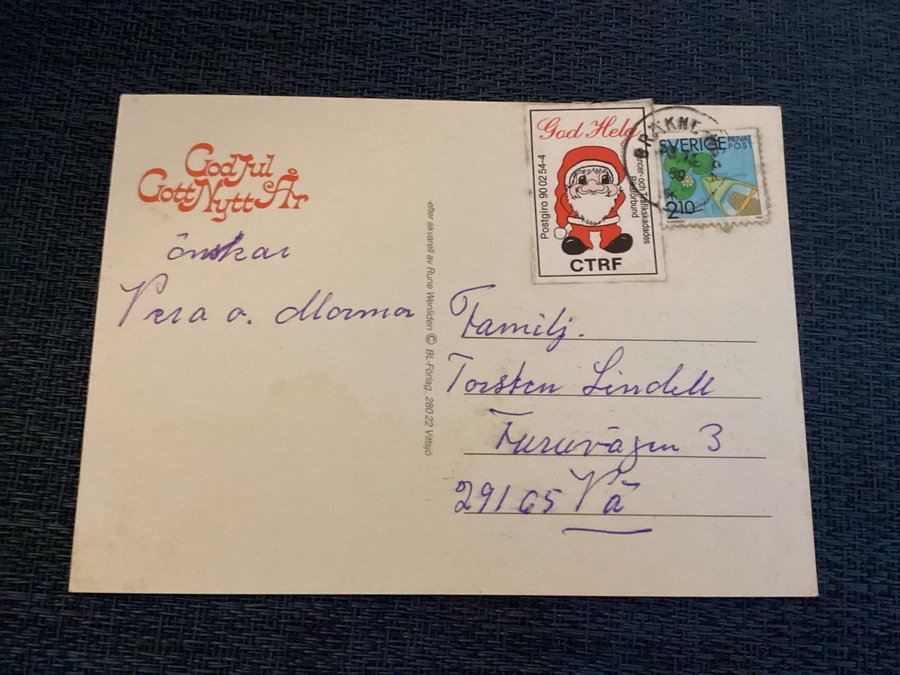 God Jul
Gott Nytt År
önskar
Vera o. Morma
efter akvarell av Rune Wenliden © BL-Förlag, 280 22 Vittsjö
God Helg
Postgiro 90 02 54-4
Cancer- och Trafikskadades
Riksförbund
CTRF
BRÄKNE
SVERIGE
PRIVAT
POST
2,10
Familj.
Torsten Lindell
Furuvägen 3
291 65 Vä